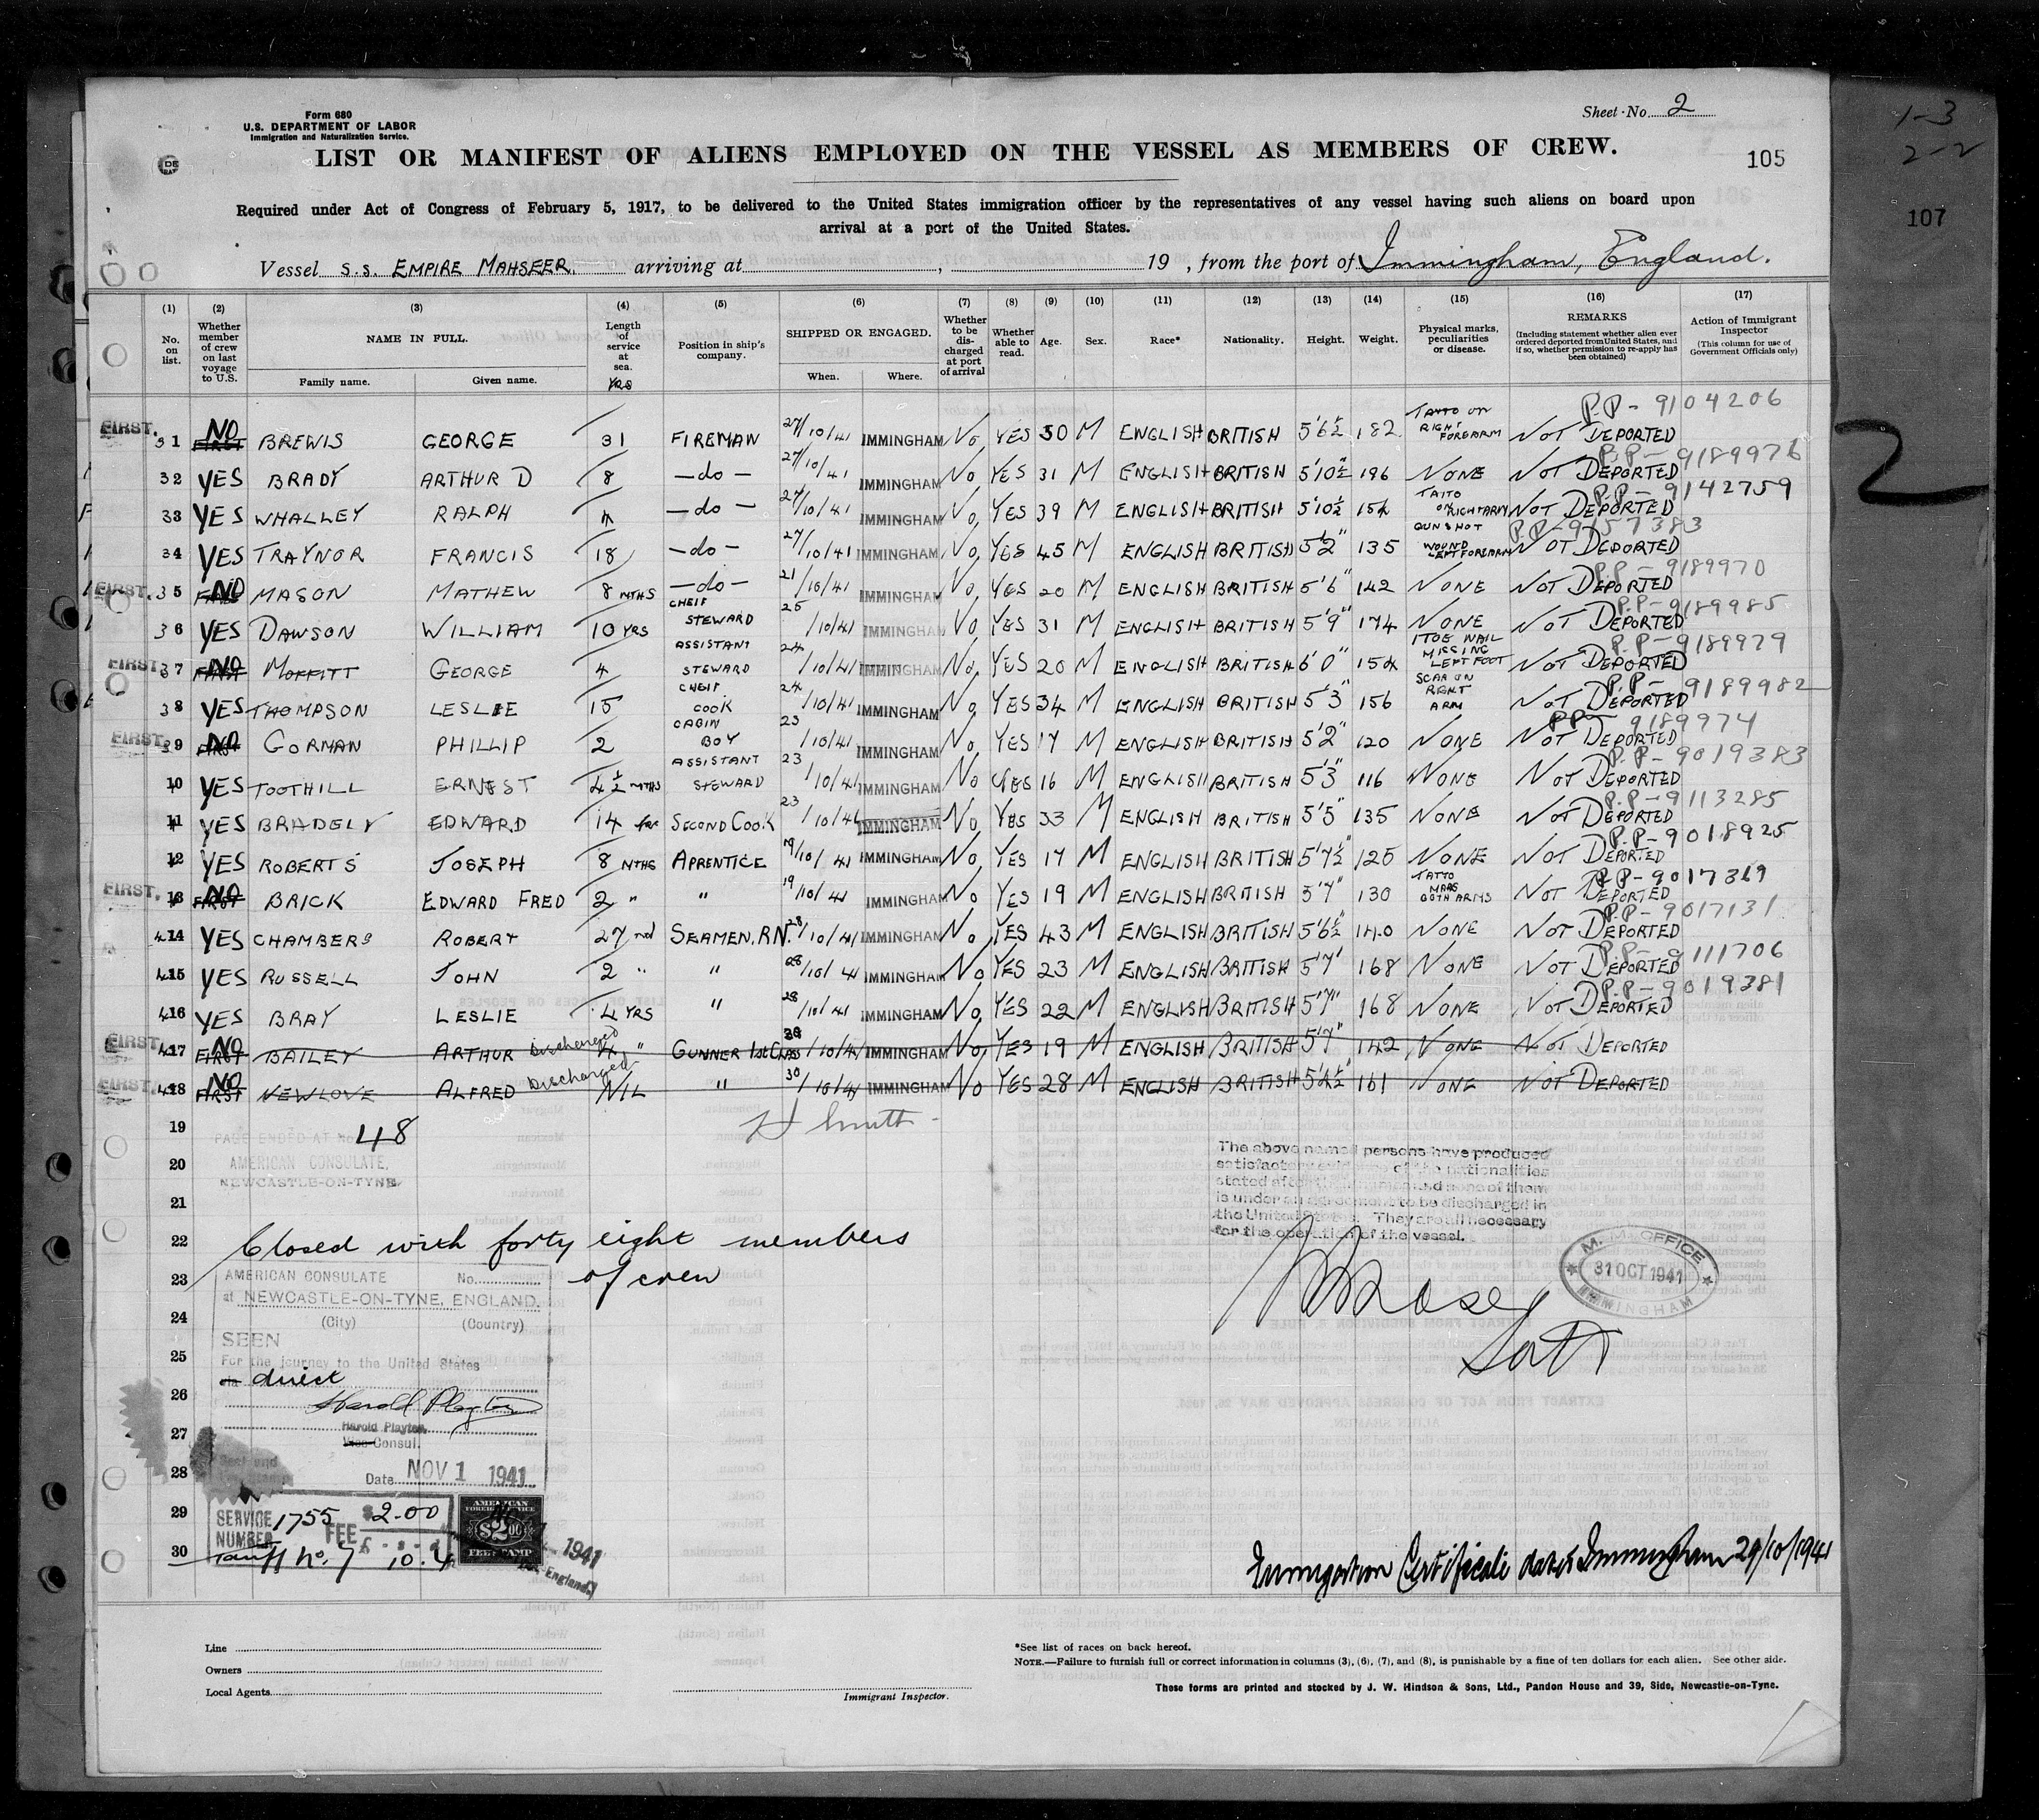 Form 680
U.S. DEPARTMENT OF LABOR
Immigration and Naturalization Service.
Sheet No. 2
1-3
2-2
LIST OR MANIFEST OF ALIENS EMPLOYED ON THE VESSEL AS MEMBERS OF CREW.
105
107
Required under Act of Congress of February 5, 1917, to be delivered to the United States immigration officer by the representatives of any vessel having such aliens on board upon
arrival at a port of the United States.
Vessel S.S. EMPIRE MAHSEER. arriving at , 19 , from the port of Immingham, England.
(1) (2) (3) (4) (5) (6) (7) (8) (9) (10) (11) (12) (13) (14) (15) (16) (17)
No. on list. Whether member of crew on last voyage to U.S. NAME IN FULL. Family name. Given name. Length of service at sea. YRS Position in ship's company. SHIPPED OR ENGAGED. When. Where. Whether to be discharged at port of arrival Whether able to read. Age. Sex. Race* Nationality. Height. Weight. Physical marks, peculiarities or disease. REMARKS (Including statement whether alien ever ordered deported from United States, and if so, whether permission to re-apply has been obtained) Action of Immigrant Inspector (This column for use of Government Officials only)
FIRST. 31 NO FIRST BREWIS GEORGE 31 FIREMAN 27/10/41 IMMINGHAM No YES 30 M ENGLISH BRITISH 5'6½ 182 TATTO ON RIGHT FOREARM NOT DEPORTED P.P-9104206
32 YES BRADY ARTHUR D 8 —do— 27/10/41 IMMINGHAM No YES 31 M ENGLISH BRITISH 5'10½ 196 NONE NOT DEPORTED P.P-9189976
33 YES WHALLEY RALPH —do— 27/10/41 IMMINGHAM No YES 39 M ENGLISH BRITISH 5'10½ 154 TATTO ON RIGHT ARM NOT DEPORTED P.P-9142759
34 YES TRAYNOR FRANCIS 18 —do— 27/10/41 IMMINGHAM No YES 45 M ENGLISH BRITISH 5'2" 135 GUNSHOT WOUND LEFT FOREARM NOT DEPORTED P.P-9157383
FIRST. 35 NO MASON MATHEW 8 MTHS —do— 21/10/41 IMMINGHAM No YES 20 M ENGLISH BRITISH 5'6" 142 NONE NOT DEPORTED P.P-9189970
36 YES DAWSON WILLIAM 10 YRS CHEIF STEWARD 25/10/41 IMMINGHAM No YES 31 M ENGLISH BRITISH 5'9" 174 NONE NOT DEPORTED P.P-9189985
FIRST 37 NO MOFFITT GEORGE 4 ASSISTANT STEWARD 24/10/41 IMMINGHAM No YES 20 M ENGLISH BRITISH 6'0" 154 1 TOE NAIL MISSING LEFT FOOT NOT DEPORTED P.P-9189979
38 YES THOMPSON LESLIE 15 CHEIF COOK 24/10/41 IMMINGHAM No YES 34 M ENGLISH BRITISH 5'3" 156 SCAR ON RIGHT ARM NOT DEPORTED P.P-9189982
FIRST 39 NO FIRST GORMAN PHILLIP 2 CABIN BOY 23/10/41 IMMINGHAM No YES 17 M ENGLISH BRITISH 5'2" 120 NONE NOT DEPORTED P.P 9189974
10 YES TOOTHILL ERNEST 4½ MTHS ASSISTANT STEWARD 23/10/41 IMMINGHAM No YES 16 M ENGLISH BRITISH 5'3" 116 NONE NOT DEPORTED P.P-9019383
11 YES BRADELY EDWARD 14 SECOND COOK 23/10/41 IMMINGHAM No YES 33 M ENGLISH BRITISH 5'5" 135 NONE NOT DEPORTED P.P-9113285
12 YES ROBERTS JOSEPH 8 MTHS APRENTICE 19/10/41 IMMINGHAM No YES 17 M ENGLISH BRITISH 5'7½" 125 NONE NOT DEPORTED P.P-9018925
FIRST. 13 NO FIRST BRICK EDWARD FRED 2 " " 19/10/41 IMMINGHAM No YES 19 M ENGLISH BRITISH 5'7" 130 TATTO MARS BOTH ARMS NOT DEPORTED P.P-9017369
414 YES CHAMBERS ROBERT 27 SEAMEN.R.N. 28/10/41 IMMINGHAM No YES 43 M ENGLISH BRITISH 5'6½" 140 NONE NOT DEPORTED P.P-9017131
415 YES RUSSELL JOHN 2 " " 28/10/41 IMMINGHAM No YES 23 M ENGLISH BRITISH 5'7' 168 NONE NOT DEPORTED P.P-9111706
416 YES BRAY LESLIE 4 YRS " 28/10/41 IMMINGHAM No YES 22 M ENGLISH BRITISH 5'7" 168 NONE NOT DEPORTED P.P-9019381
FIRST. 417 NO FIRST BAILEY ARTHUR Discharged 4 " GUNNER 1st CLASS 30/10/41 IMMINGHAM No YES 19 M ENGLISH BRITISH 5'7" 142 NONE NOT DEPORTED
FIRST. 418 NO FIRST NEWLOVE ALFRED Discharged NIL " 30/10/41 IMMINGHAM No YES 28 M ENGLISH BRITISH 5'4½" 161 NONE NOT DEPORTED
2
19
PAGE ENDED AT No 48
H Smith
20
AMERICAN CONSULATE,
NEWCASTLE-ON-TYNE
The above named persons have produced
satisfactory evidence of the nationalities
stated after their names and none of them
is under an agreement to be discharged in
the United States. They are all necessary
for the operation of the vessel.
21
22
Closed with forty eight members
of crew
M. M. OFFICE
31 OCT 1941
IMMINGHAM
23
AMERICAN CONSULATE No.
at NEWCASTLE-ON-TYNE, ENGLAND.
(City) (Country)
24
SEEN
25
For the journey to the United States
direct
26
Harold Playter
27
Harold Playter,
Vice Consul.
28
Date NOV 1 1941
29
SERVICE NUMBER 1755 FEE $2.00
AMERICAN FOREIGN SERVICE $2.00 FEE STAMP
1941
England
30
Tariff No. 7 £-s-d 10.4
Immigration Certificate dated Immingham 29/10/1941
Line
Owners
Local Agents
Immigrant Inspector.
*See list of races on back hereof.
NOTE.—Failure to furnish full or correct information in columns (3), (6), (7), and (8), is punishable by a fine of ten dollars for each alien. See other side.
These forms are printed and stocked by J. W. Hindson & Sons, Ltd., Pandon House and 39, Side, Newcastle-on-Tyne.